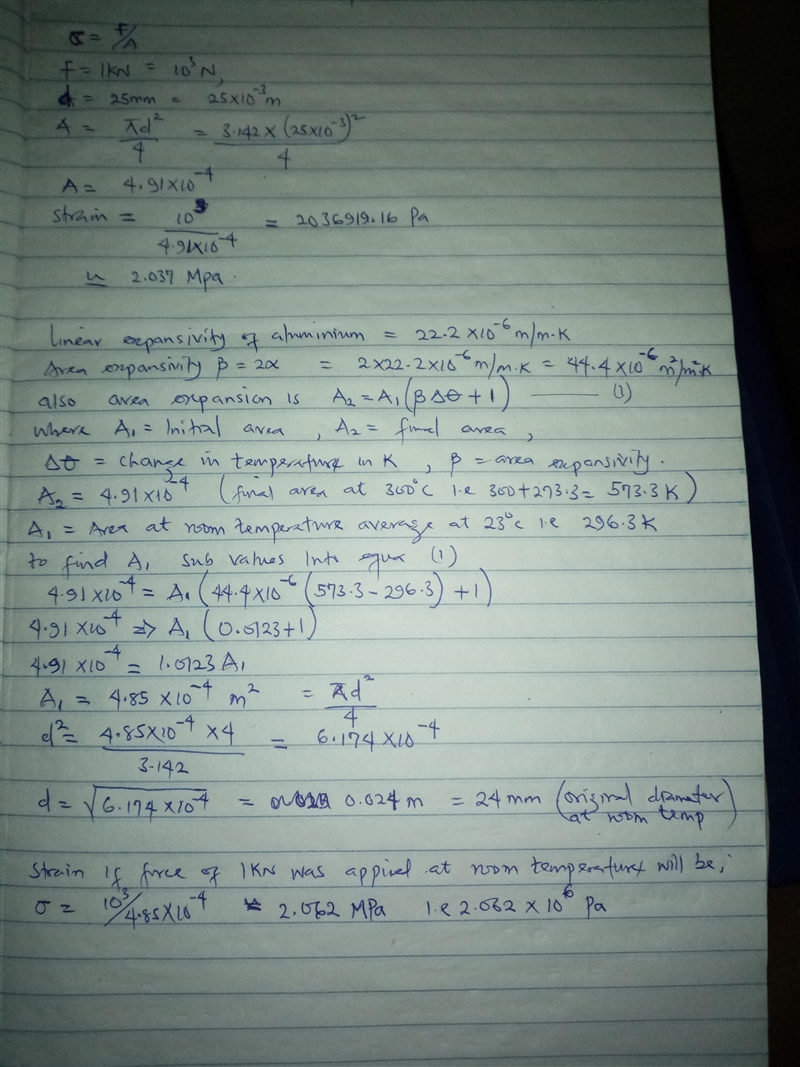 σ = F/A
F = 1KN = 10³ N,
d = 25mm = 25×10⁻³ m
A = πd²/4 = 3.142 × (25×10⁻³)²/4
A = 4.91×10⁻⁴
Strain = 10³/4.91×10⁻⁴ = 2036919.16 Pa
≃ 2.037 Mpa.
Linear expansivity of aluminium = 22.2 ×10⁻⁶ m/m.K
Area expansivity β = 2α = 2×22.2×10⁻⁶ m/m.K = 44.4×10⁻⁶ m²/m²K
also area expansion is A₂ = A₁(βΔθ + 1) ——— (1)
where A₁ = Initial area , A₂ = final area ,
Δθ = change in temperature in K , β = area expansivity.
A₂ = 4.91×10⁻⁴ (final area at 300°c i.e 300+273.3 = 573.3 K)
A₁ = Area at room temperature average at 23°c i.e 296.3K
to find A₁ sub values Into equa (1)
4.91×10⁻⁴ = A₁(44.4×10⁻⁶(573.3 – 296.3) + 1)
4.91 ×10⁻⁴ => A₁(0.0123+1)
4.91 ×10⁻⁴ = 1.0123 A₁
A₁ = 4.85 ×10⁻⁴ m² = πd²/4
d² = 4.85×10⁻⁴ ×4/3.142 = 6.174 ×10⁻⁴
d = √6.174 ×10⁻⁴ = 0.024 m = 24 mm (original diameter at room temp)
Strain if force of 1KN was applied at room temperature will be;
σ = 10³/4.85×10⁻⁴ ≃ 2.062 MPa i.e 2.062 × 10⁶ Pa